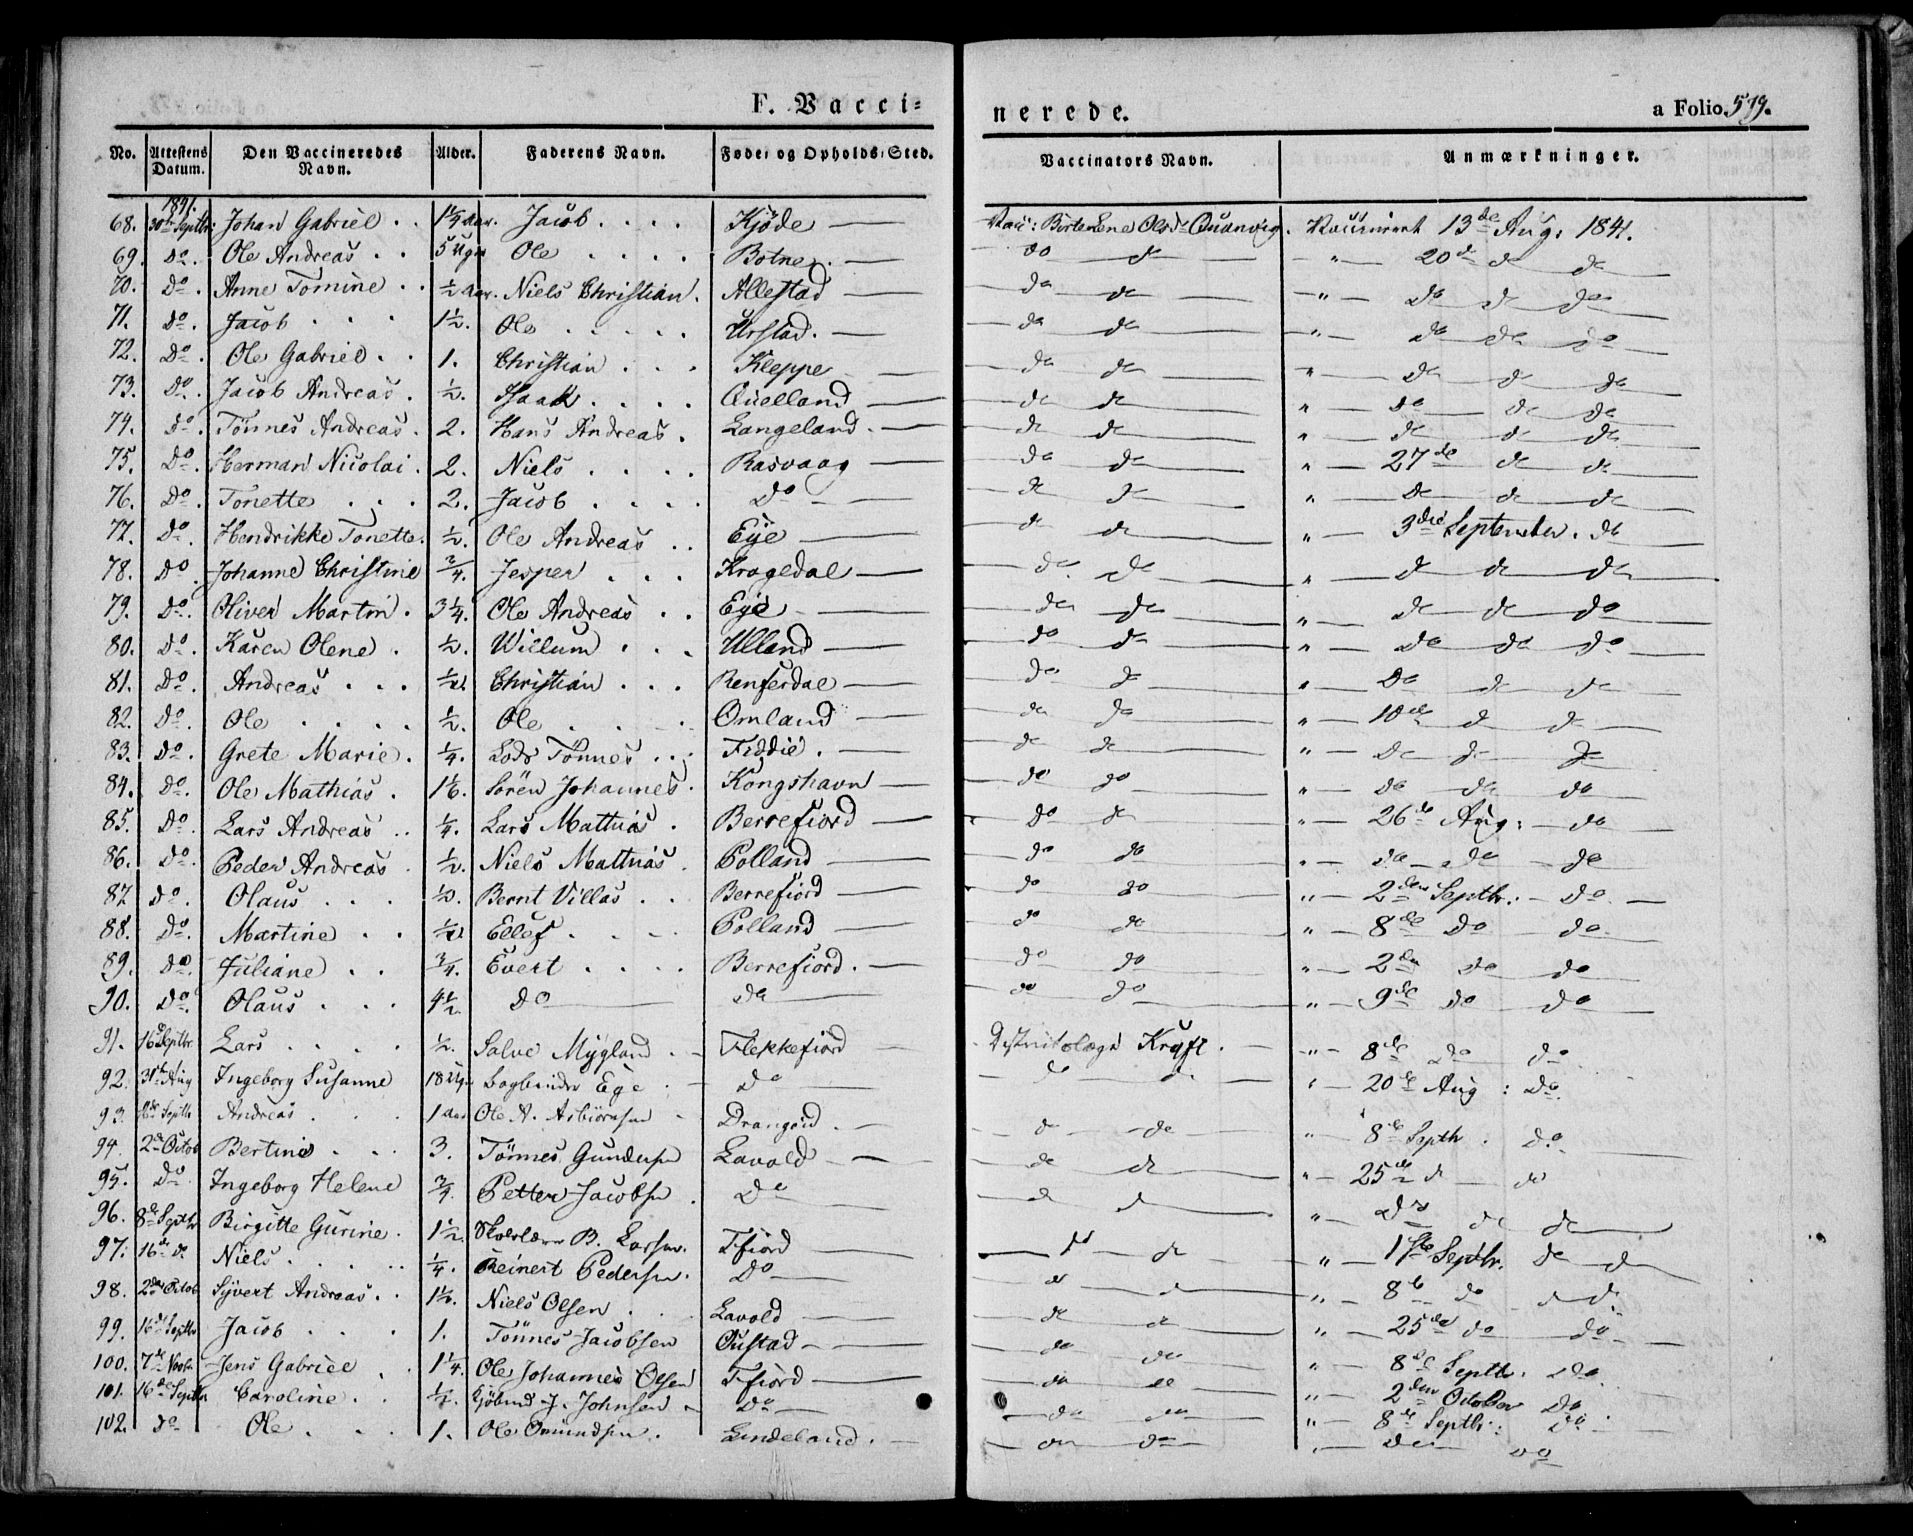 F. Vacci=
nerede.
a Folio. 579.
No. Attestens Datum. Den Vaccineredes Navn. Alder. Faderens Navn. Føde- og Opholds-Sted. Vaccinators Navn. Anmærkninger.
1841.
68. 30te Septbr: Johan Gabriel . . 1 1/4 aar. Jacob . . . . Kjöde — Vacc: Birte Lene Olsdr Quanvig. Vaccineret 13de Aug: 1841.
69. Do. Ole Andreas . . 5 Uger Ole . . . . Botne. — do do " — 20de do do
70. Do. Anne Tomine . . 1/2 aar. Niels Christian. Allestad — do do " — do do do
71. Do. Jacob . . . 1 1/2. Ole . . . . . Urstad. — do do " — do do do
72. Do. Ole Gabriel . . 1. Christian . . . Kleppe — do do " — do do do
73. Do. Jacob Andreas . 1/2. Isaak . . . . Quelland — do do " — do do do
74. Do. Tönnes Andreas . 2. Hans Andreas . Langeland. — do do " — do do do
75. Do. Herman Nicolai . 2. Niels . . . . Rasvaag — do do " — 27de do do
76. Do. Tonette . . . 2. Jacob . . . . Do — do do " — do do do
77. Do. Hendrikke Tonette. 1/2. Ole Andreas . . Eye — do do " — 3die September. do
78. Do. Johanne Christine 3/4. Jesper . . . Kragedal — do do " — do do do
79. Do. Oliver Martin . 3 1/4. Ole Andreas . . Eye — do do " — do do do
80. Do. Karen Olene . 1/2. Willum . . . Ulland — do do " — do do do
81. Do. Andreas . . . 1/2. Christian . . . Renferdal — do do " — do do do
82. Do. Ole . . . . 1/2. Ole . . . . Omland — do do " — 10de do do
83. Do. Grete Marie . 1/4. Lods Tönnes . . Fiddie . — do do " — do do do
84. Do. Ole Mathias . 1 1/6. Sören Johannes . Kongshavn — do do " — do do do
85. Do. Lars Andreas . . 1/4. Lars Mathias . Berrefiord — do do " — 26de Aug: — do
86. Do. Peder Andreas . 1/2. Niels Mathias . Polland — do do " — do do do
87 Do. Olaus . . . 1/2. Bernt Villas . . Berrefiord — do do " — 2den Septbr: — do —
88. Do. Martine . . 1/2. Ellef . . . . Polland — do do " — 8de do do
89. Do. Juliane . . 3/4. Evert . . . . Berrefiord. — do do " — 2den do do
90. Do. Olaus . . . 4 1/2. Do — do — do do " — 9de do do
91. 16de Septbr Lars . . . . 1/2. Salve Mygland . — Flekkefiord — Districtslæge Kraft. — " — 8de do do
92. 31te Aug Ingeborg Susanne 18 Ug. Bogbinder Ege . — Do — do do " — 20de Aug : Do.
93. Septb Andreas . . . 1 aar Ole A. Asbiörnsen — Drangeid . — do do " — 8de Septb . do.
94. 2de Octob Bertine . . . 3. Tönnes Gundersn Lavold — do do " — 25de do do
95. Do Ingeborg Helene 3/4. Petter Jacobsn . Do — do do " — Do do do
96. 8de Septbr Birgitte Gurine . 1 1/2. B. Larsen. Ffiord — do do " — 1ste Septbr. do do
97. 16de do Niels . . . . . 1/4. Reinert Pedersen . Do — do do " — 8de do do do
98. 2den Octob Syvert Andreas . . 1 1/2. Niels Olsen . . . Lavold — do do " — 25de do do
99. 16de Septbr Jacob . . . 1. Tönnes Jacobsen Oustad — do do " — 8de Septbr. do
100. 7de Novbr Jens Gabriel . 1 1/4. Ole Johannes Olsen Ffiord — do do " — 2den October Do
101. 16de Septbr Caroline . . 1/2. J. Johnsen — Do — do do " — 8de Septbr: do
102. do Ole . . . 1. Ole Omundsen . Lindeland. — do do " — do do